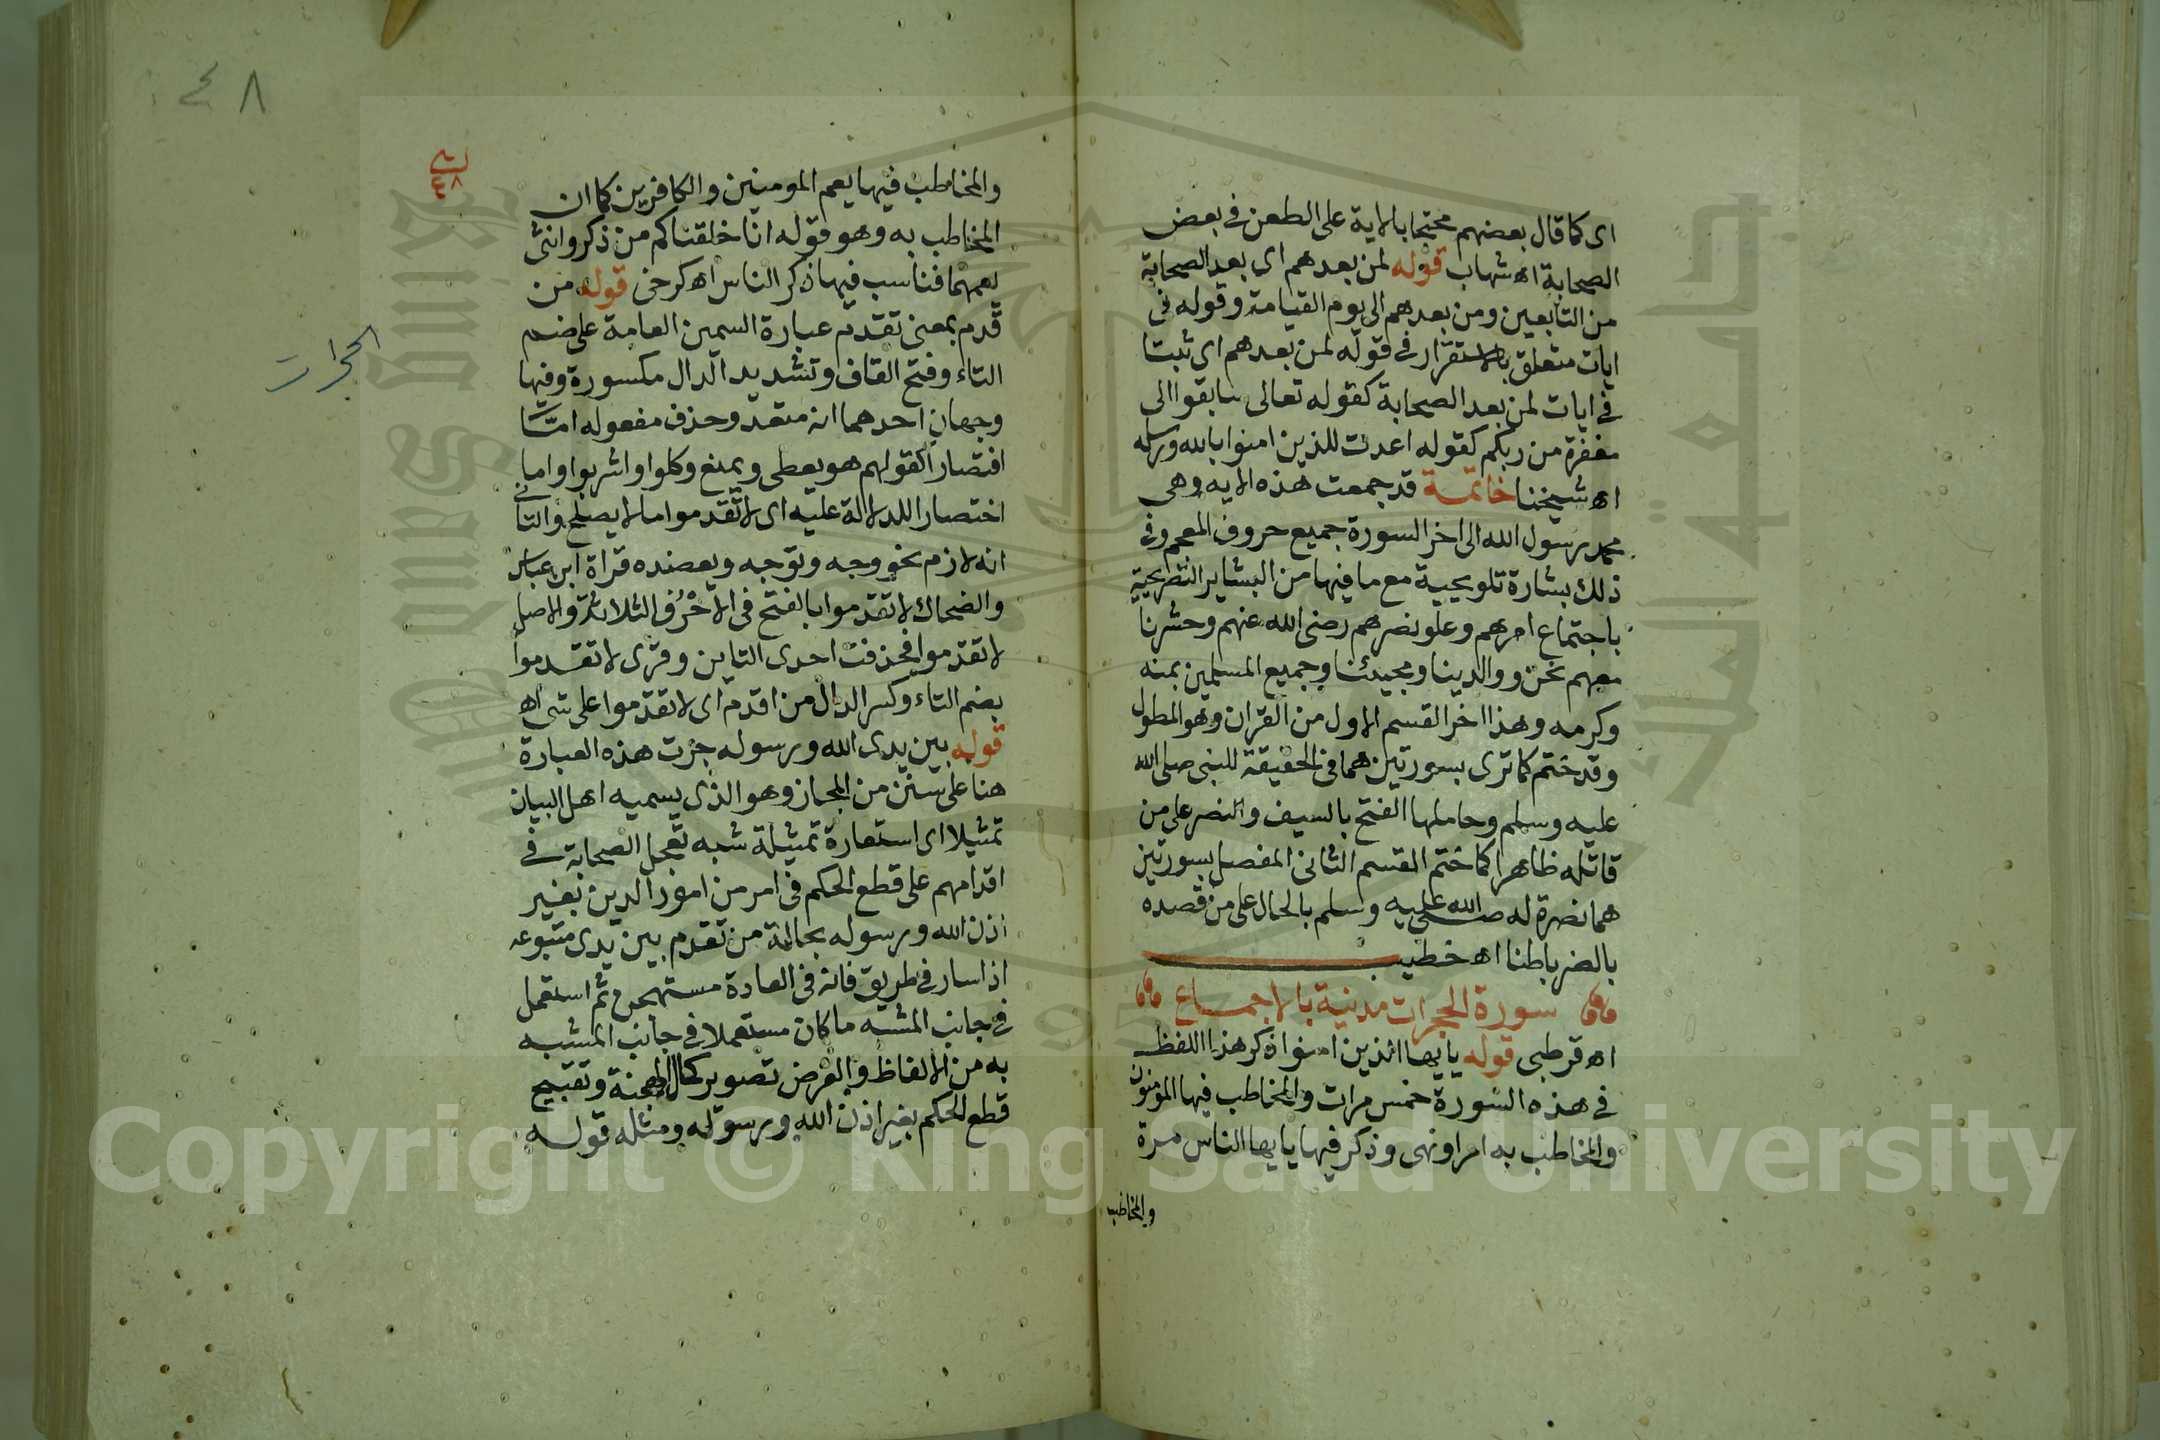 اى كما قال بعضهم محتجا بالاية على الطعن فى بعض
الصحابة اه شهاب قوله لمن بعدهم اى بعد الصحابة
من التابعين ومن بعدهم الى يوم القيامة وقوله فى
ايات متعلق بالاستقرار فى قوله لمن بعدهم اى ثبتا
فى ايات لمن بعد الصحابة كقوله تعالى سابقوا الى
مغفرة من ربكم كقوله اعدت للذين امنوا بالله ورسله
اه شيخنا خاتمة قد جمعت هذه الايه وهى
محمد رسول الله الى اخر السورة جميع حروف المعجم وفى
ذلك بشارة تلويحية مع ما فيها من البشاير التصريحية
باجتماع امرهم وعلو نصرهم رضى الله عنهم وحشرنا
معهم نحن ووالدينا ومحبينا وجميع المسلمين بمنه
وكرمه وهذا اخر القسم الاول من القران وهو المطول
وقد ختم كما ترى بسورتين هما فى الحقيقة للنبى صلى الله
عليه وسلم وحاملها الفتح بالسيف والنصر على من
قاتله ظاهرا كما ختم القسم الثانى المفصل بسورتين
هما نصرة له صلى الله عليه وسلم بالحال على من قصده
بالضر باطنا اه خطيب
سورة الحجرات مدنية بالاجماع
اه قرطبى قوله يا يها الذين امنوا ذكر هذا اللفظ
فى هذه السورة خمس مرات والمخاطب فيها المومنون
والمخاطب به امر او نهى وذكر فيها يا يها الناس مرة
والمخاطب
٤٨
٤٨
الحجرات
والمخاطب فيها يعم المومنين والكافرين كما ان
المخاطب به وهو قوله انا خلقناكم من ذكر وانثى
يعمهما فناسب فيها ذكر الناس اه كرخى قوله من
قدم بمعنى تقدم عبارة السمين العامة على ضم
التاء وفتح القاف وتشديد الدال مكسورة وفيها
وجهان احدهما انه متعد وحذف مفعوله اما
اقتصارا كقولهم هو يعطى ويمنع وكلوا واشربوا واما
اختصارا للدلالة عليه اى لا تقدموا ما لا يصلح والثانى
انه لازم نحو وجه وتوجه ويعضده قراة ابن عباس
والضحاك لا تقدموا بالفتح فى الاحرف الثلاثة والاصل
لا تتقدموا فحذفت احدى التاين وقرى لا تقدموا
بضم التاء وكسر الدال من اقدم اى لا تقدموا على شى اه
قوله بين يدى الله ورسوله جرت هذه العبارة
هنا على سنن من المجاز وهو الذى يسميه اهل البيان
تمثيلا اى استعارة تمثيلة شبه تعجل الصحابة فى
اقدامهم على قطع الحكم فى امر من امور الدين بغير
اذن الله ورسوله بحالة من تقدم بين يدى متبوعه
اذا سار فى طريق فانه فى العادة مستهجن ثم استعمل
فى جانب المشبه ما كان مستعملا فى جانب المشبه
به من الالفاظ والغرض تصوير كمال الهجنة وتقبيح
قطع الحكم بغير اذن الله ورسوله ومثله قوله
Copyright © King Saud University
King Saud University
جامعة الملك سعود